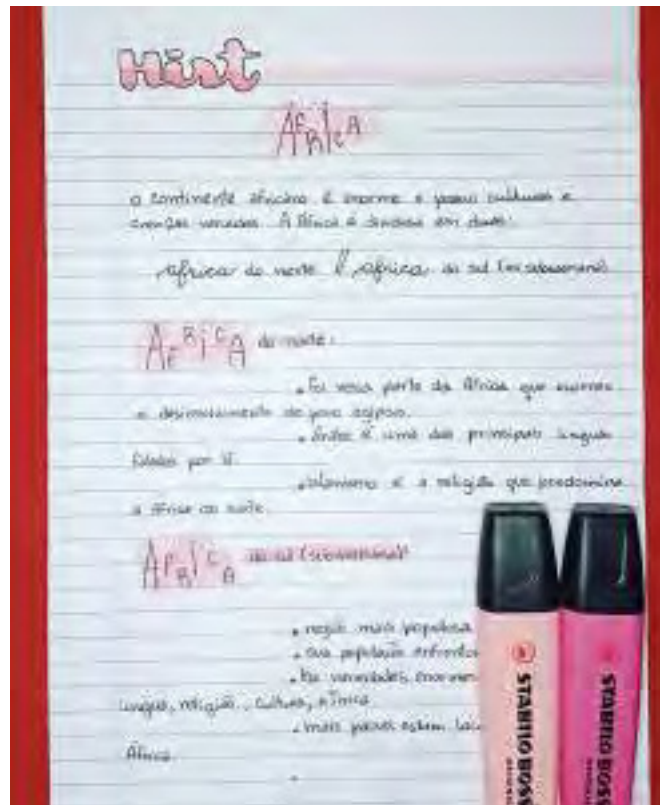 Hist
AFRICA
o continente africano é enorme e possui culturas e
crenças variadas. A África é dividida em duas:
africa do norte // africa do sul (ou subsaariana)
AFRICA do norte:
• Foi nessa parte da África que ocorreu
o desenvolvimento do povo egípcio.
• Árabe é uma das principais línguas
faladas por lá.
• Islamismo é a religião que predomina
a África do norte.
AFRICA do sul (subsaariana)
• região mais populosa
• sua população enfrenta
• há variedades enormes
língua, religião, cultura, etnica
• mais países estam
África.
STABILO BOSS
STABILO BOSS